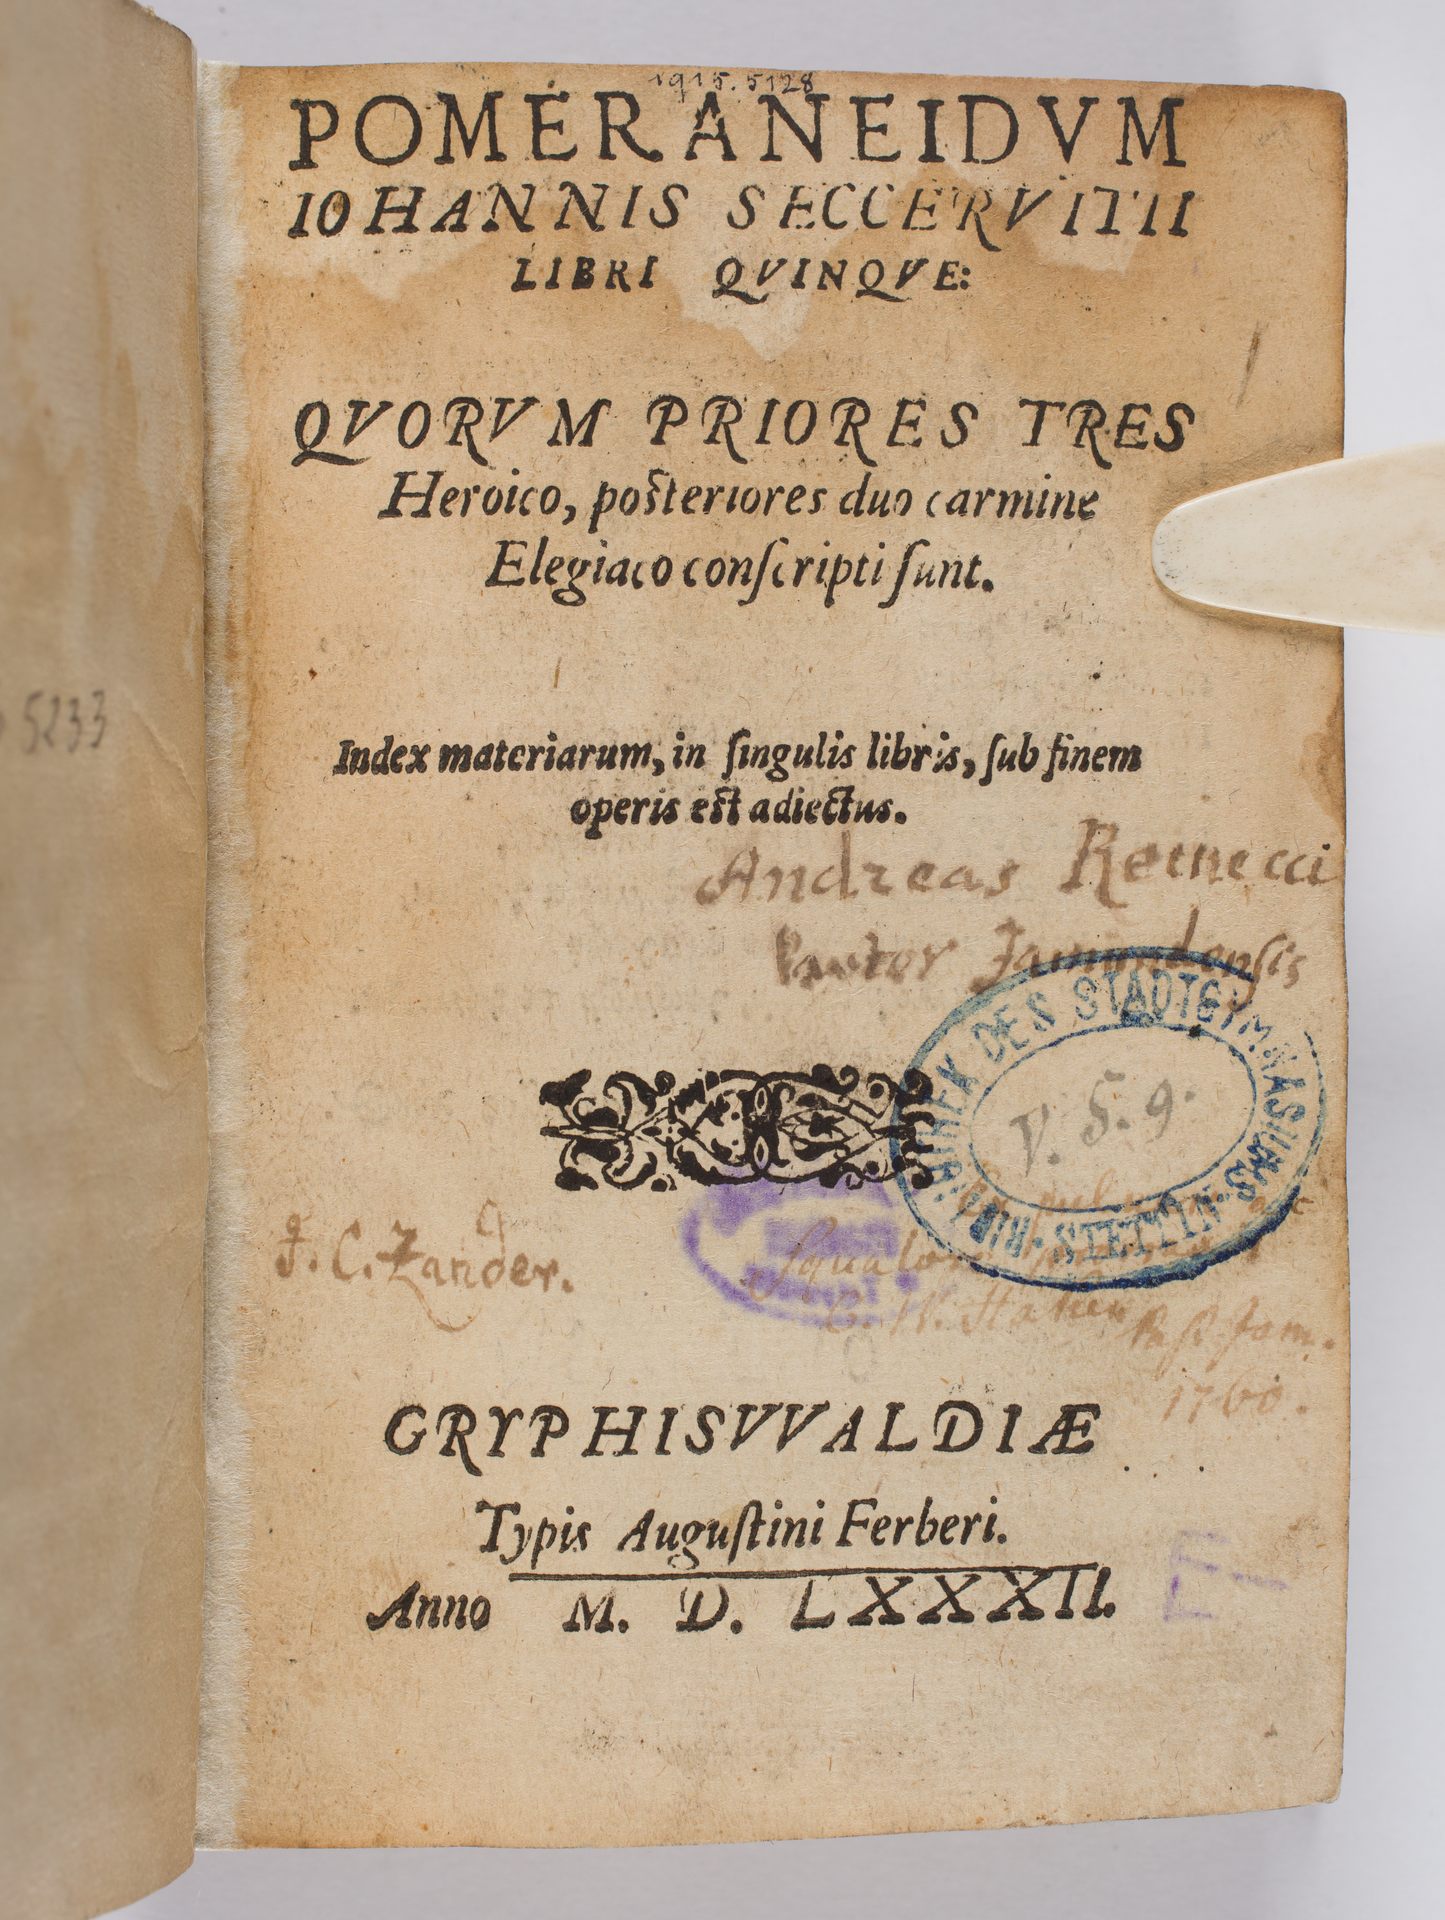 1915. 5128
POMERANEIDVM
IOHANNIS SECCERVITII
LIBRI QVINQVE:
QVORVM PRIORES TRES
Heroico, posteriores duo carmine
Elegiaco conſcripti ſunt.
Index materiarum, in ſingulis libris, ſub finem
operis est adiectus.
5233
Andreas Reinecci
Pastor Jamundensis
BIBLIOTHEK DES STADTGYMNASIUMS · STETTIN ·
V. 5. 9.
J. C. Zander.
Squalore
Past. Jam.
1760.
GRYPHISVVALDIÆ
Typis Auguſtini Ferberi.
Anno M. D. LXXXII.